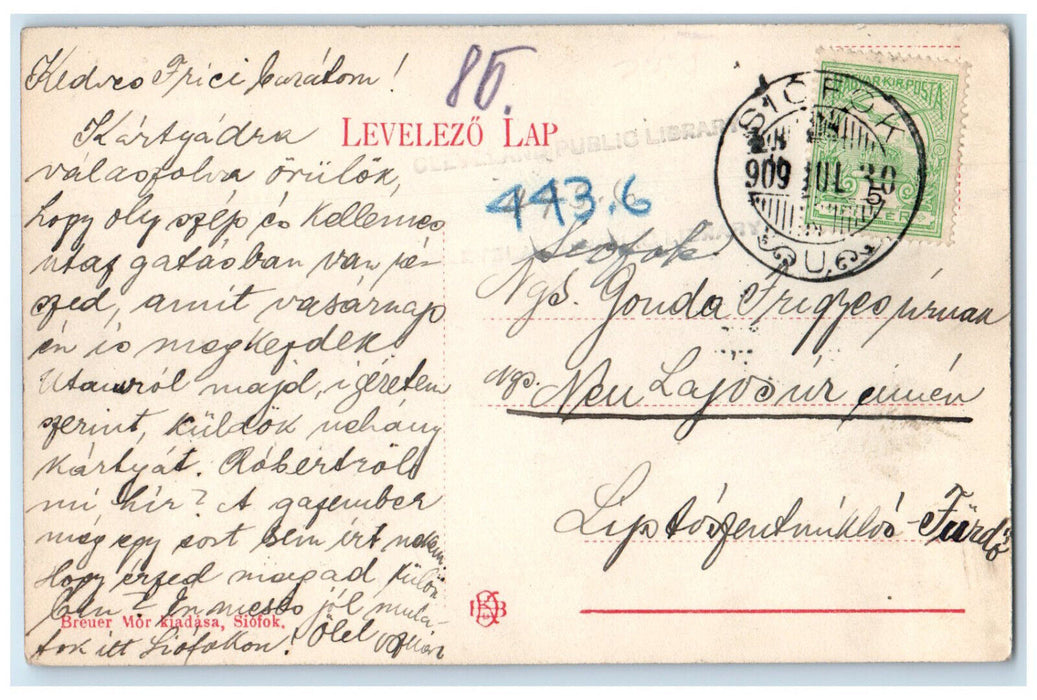 Kedves Frici barátom!
Kártyádra
válaszolva örülök,
hogy oly szép és kellemes
utazgatásban van ré-
szed, amit vasárnap
én is megkezdek.
Utamról majd, igéretem
szerint, küldök néhány
kártyát. Róbertról
mi hír? A gazember
még egy sort sem írt nekem
Hogy érzed magad külön
ben? Én messés jól mula-
tok itt Siófokon! Ölel
Breuer Mór kiadása, Siófok.
85.
LEVELEZŐ LAP
CLEVELAND PUBLIC LIBRARY
443.6
Siófok
CLEVELAND PUBLIC LIBRARY
MAGYAR KIR. POSTA
5
SIÓFOK
909 JUL 30
U.
Ngs. Gonda Frigyes úrnak
Ngs. Neu Lajos úr címén
Liptószentmiklós-Fürdő